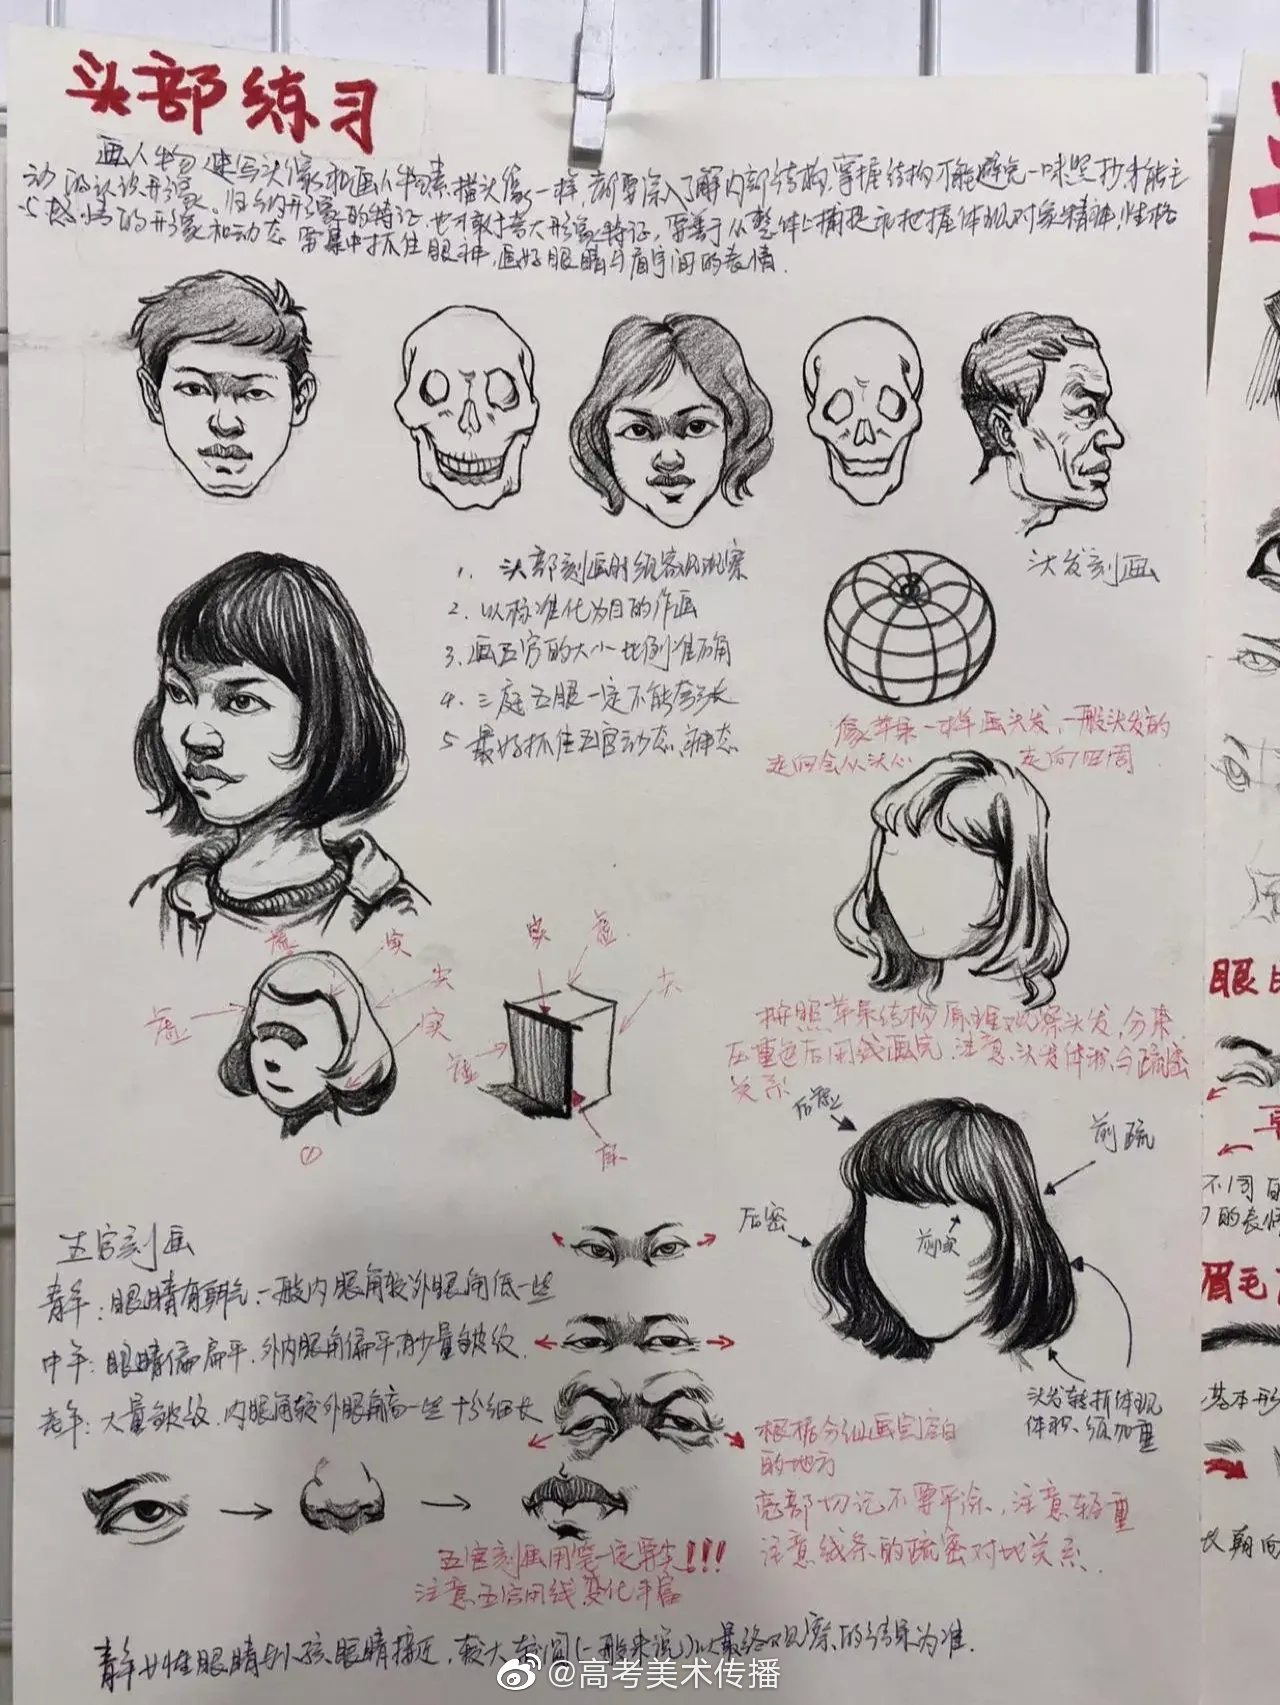 头部练习
画人物速写头像和画人物素描头像一样,都要深入了解内部结构,掌握结构不能避免一味照抄,才能主
动的认识形象。归纳形象的特征,也才敢于夸大形象特征,要善于从整体上捕捉和把握体现对象精神,性格
与感情的形象和动态 需集中抓住眼神,画好眼睛与眉宇间的表情.
1. 头部刻画时须客观观察
2. 以标准化为目的作画
3. 画五官的大小比例准确
4. 三庭五眼一定不能夸张
5 最好抓住五官动态、神态
头发刻画
像苹果一样画头发,一般头发的
走向会从头心 走向四周
虚
实
实
实
虚
①
实
虚
虚
按照苹果结构原理观察头发,分集
压重色后用线画完,注意,头发体积与疏密
关系
前疏
后密
前实
头发转折体现
体积、须加重
五官刻画
青年:眼睛有朝气,一般内眼角较外眼角低一些
中年:眼睛偏扁平,外内眼角偏平,有少量皱纹.
老年:大量皱纹.内眼角较外眼角高一些 十分细长
根据分组画完空白
的地方
亮部切记不要平涂,注意轻重
注意线条的疏密对比关系.
五官刻画用笔一定要尖!!!
注意五官用线变化丰富
青年女性眼睛与小孩眼睛接近,较大较圆(一般来说)以最终观察的结果为准.
@高考美术传播
眼
不同的
的表情
眉毛
基本形
长 朝向